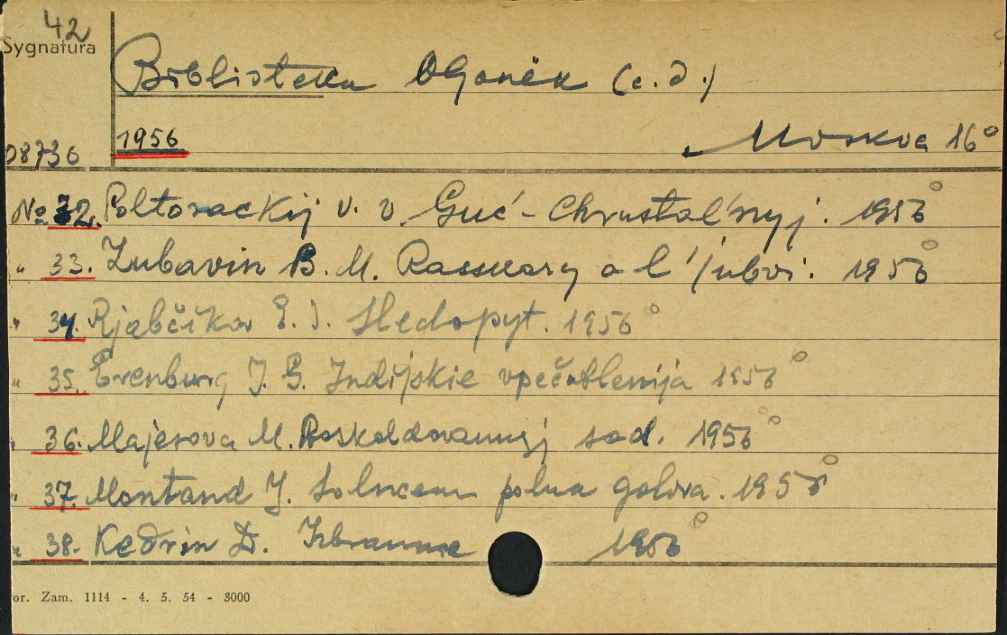 42
Sygnatura
Biblioteka Ogonëk (c.d.)
1956 Moskva 16°
08736
No 32. Poltorackij V. V Guć-Chrustal'nyj. 1956
" 33. Zubavin B. M. Rasskazy o l'jubvi. 1956
" 34. Rjabčikov E. I. Sledopyt. 1956
" 35. Erenburg I. G. Indijskie vpečatlenija 1956
" 36. Majerova M. Roskoldovannyj sad. 1956
" 37. Montand I. Solncem polna golova. 1956
" 38. Kedrin D. Izbrannoe 1956
or. Zam. 1114 - 4. 5. 54 - 3000